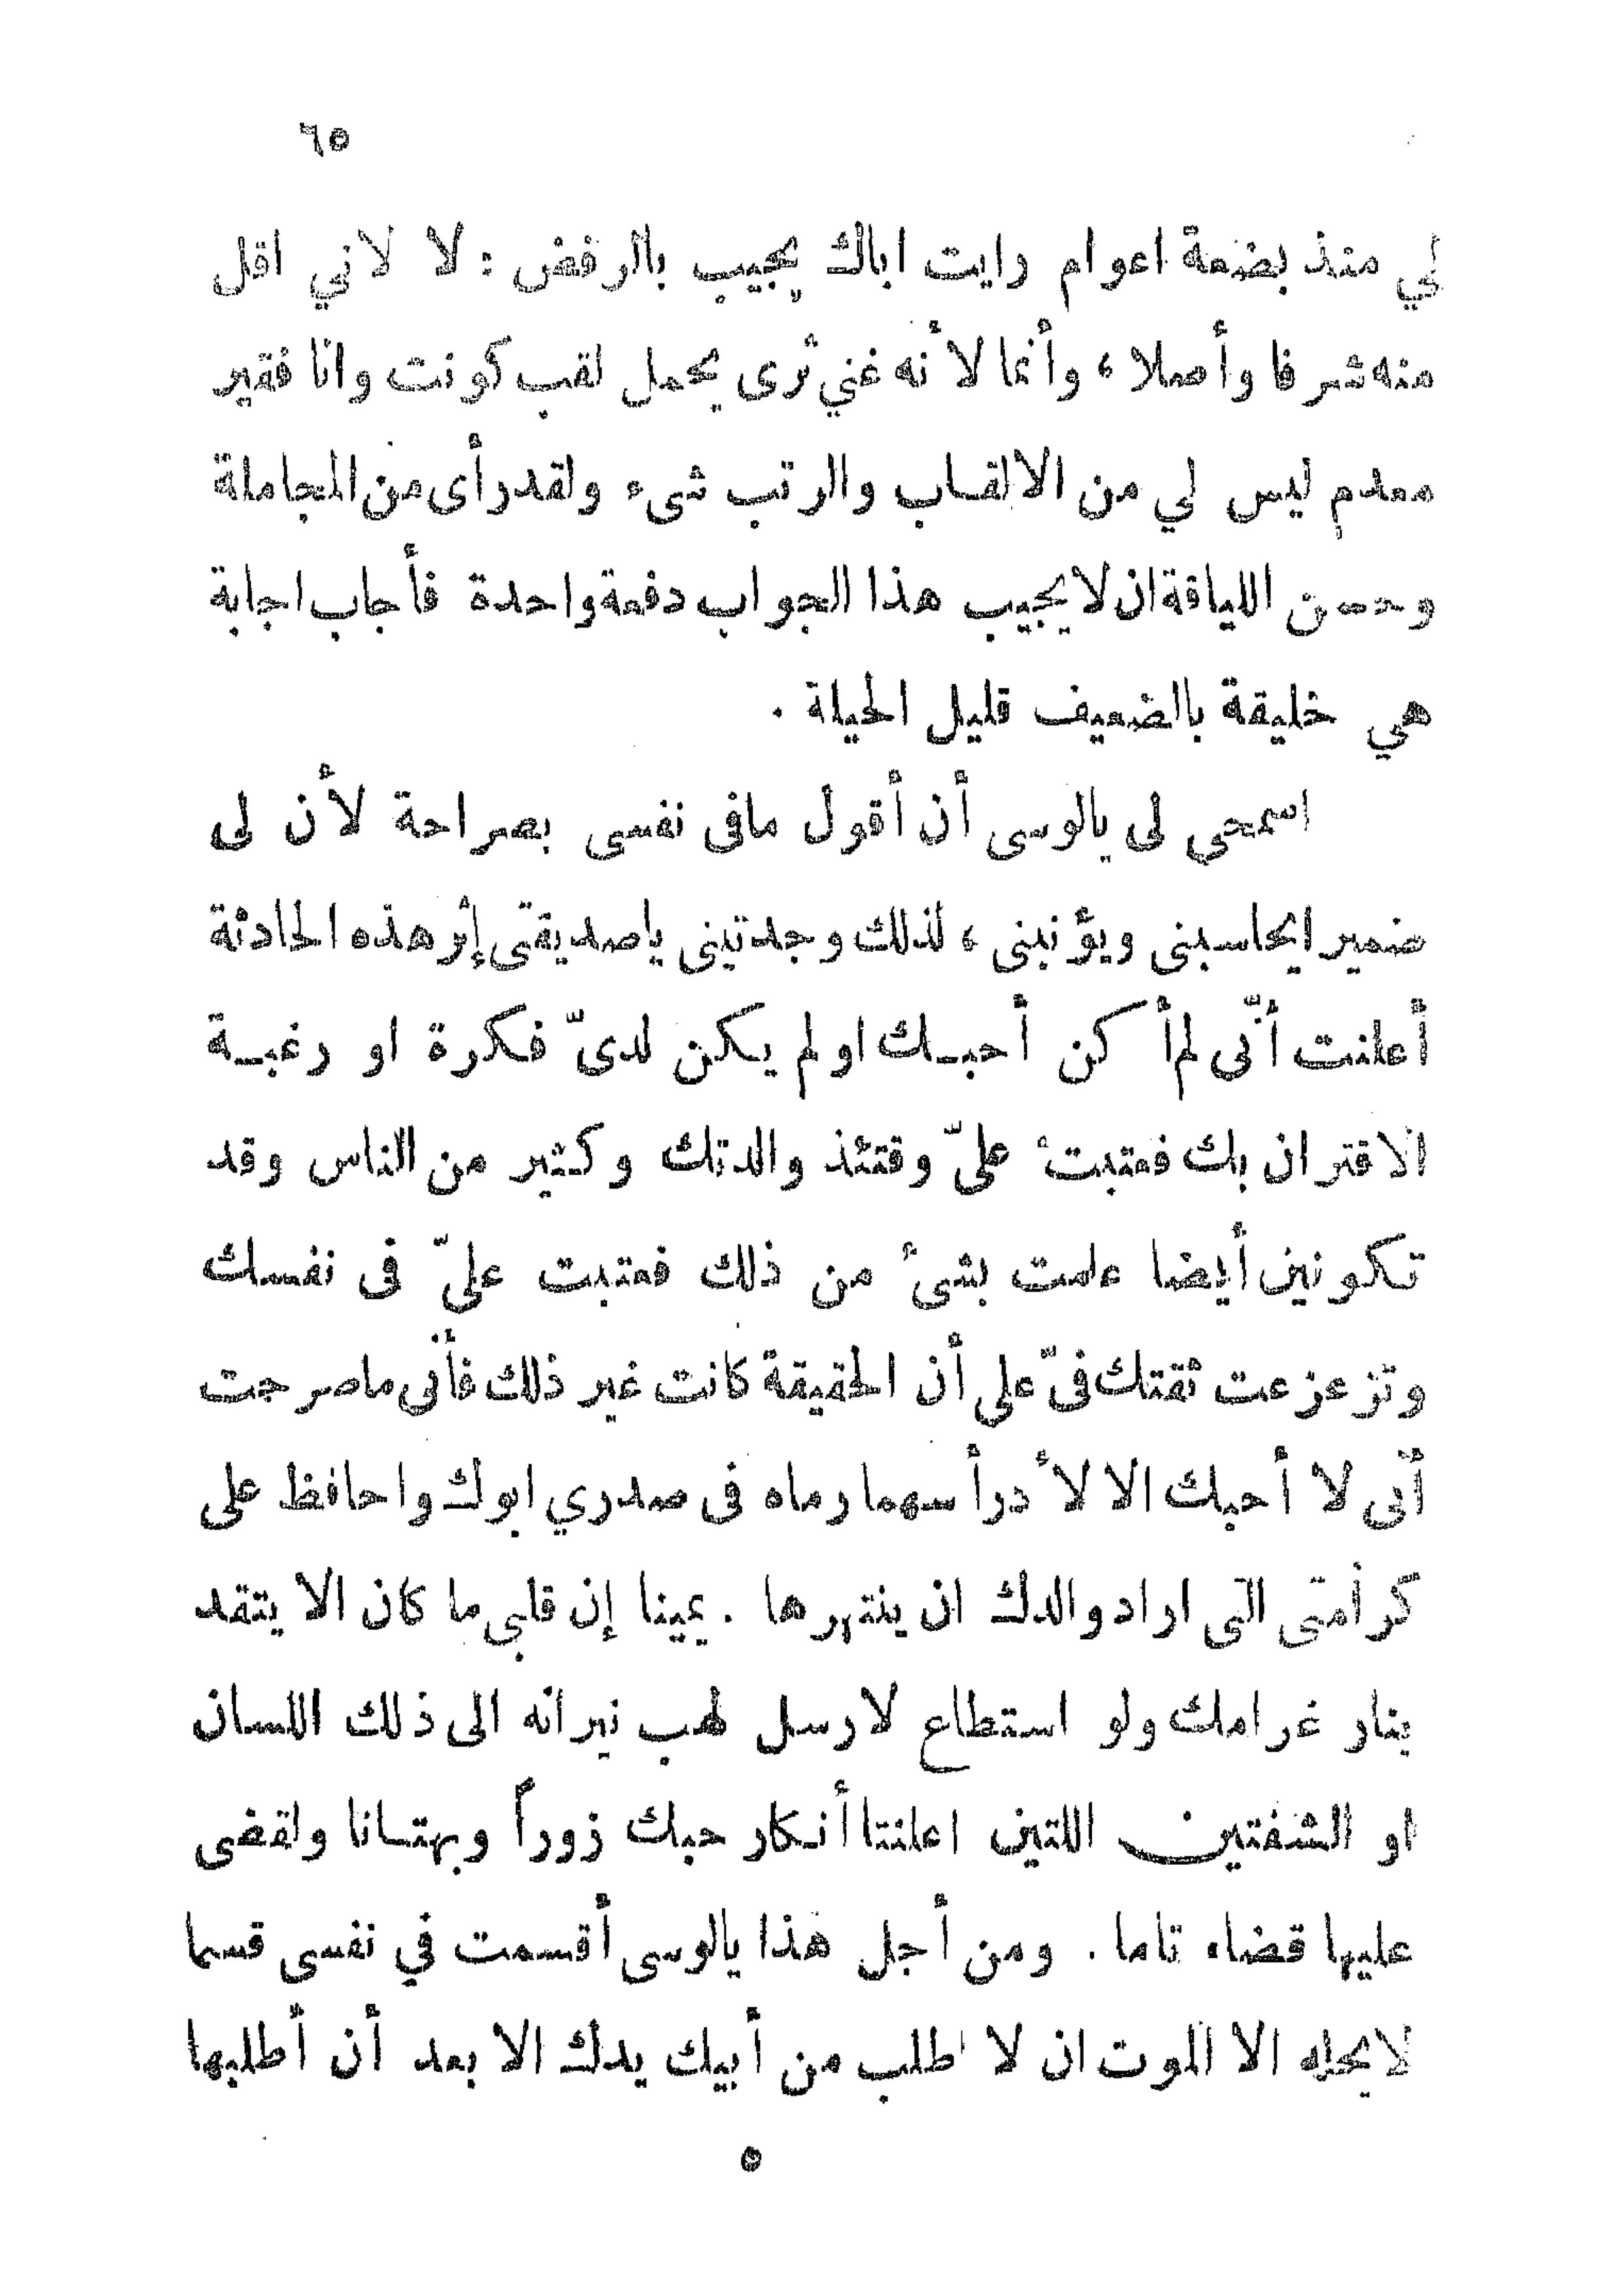 ٦٥
لي منذ بضعة اعوام رايت اباك يجيب بالرفض : لا لاني اقل
منه شرفا وأصلا ، وأنما لأنه غني ثرى يحمل لقب كونت وانا فقير
معدم ليس لي من الالقاب والرتب شىء ولقد رأى من المجاملة
وحسن اللياقة ان لا يجيب هذا الجواب دفعة واحدة فأجاب اجابة
هي خليقة بالضعيف قليل الحيلة .
اسمحي لى يالوسى أن أقول مافى نفسى بصراحة لأن لى
ضميرا يحاسبنى ويؤنبنى ، لذلك وجدتينى ياصديقتى إثر هذه الحادثة
أعلنت أنّى لم أكن أحبك او لم يكن لدىّ فكرة او رغبة
الاقتران بك فعتبتْ علىّ وقتئذ والدتك وكثير من الناس وقد
تكونين أيضا علمت بشىٔ من ذلك فعتبت عليّ فى نفسك
وتزعزعت ثقتك فىّ على أن الحقيقة كانت غير ذلك فأنى ماصرحت
أنى لا أحبك الا لأدرأ سهما رماه فى صدري ابوك واحافظ على
كرامتى التى اراد والدك ان ينتهرها . يمينا إن قلبي ما كان الا يتقد
بنار غرامك ولو استطاع لارسل لهب نيرانه الى ذلك اللسان
او الشفتين اللتين اعلنتا أنكار حبك زوراً وبهتانا ولقضى
عليها قضاء تاما . ومن أجل هذا يالوسى أقسمت في نفسى قسما
لايحله الا الموت ان لا اطلب من أبيك يدك الا بعد أن أطلبها
٥